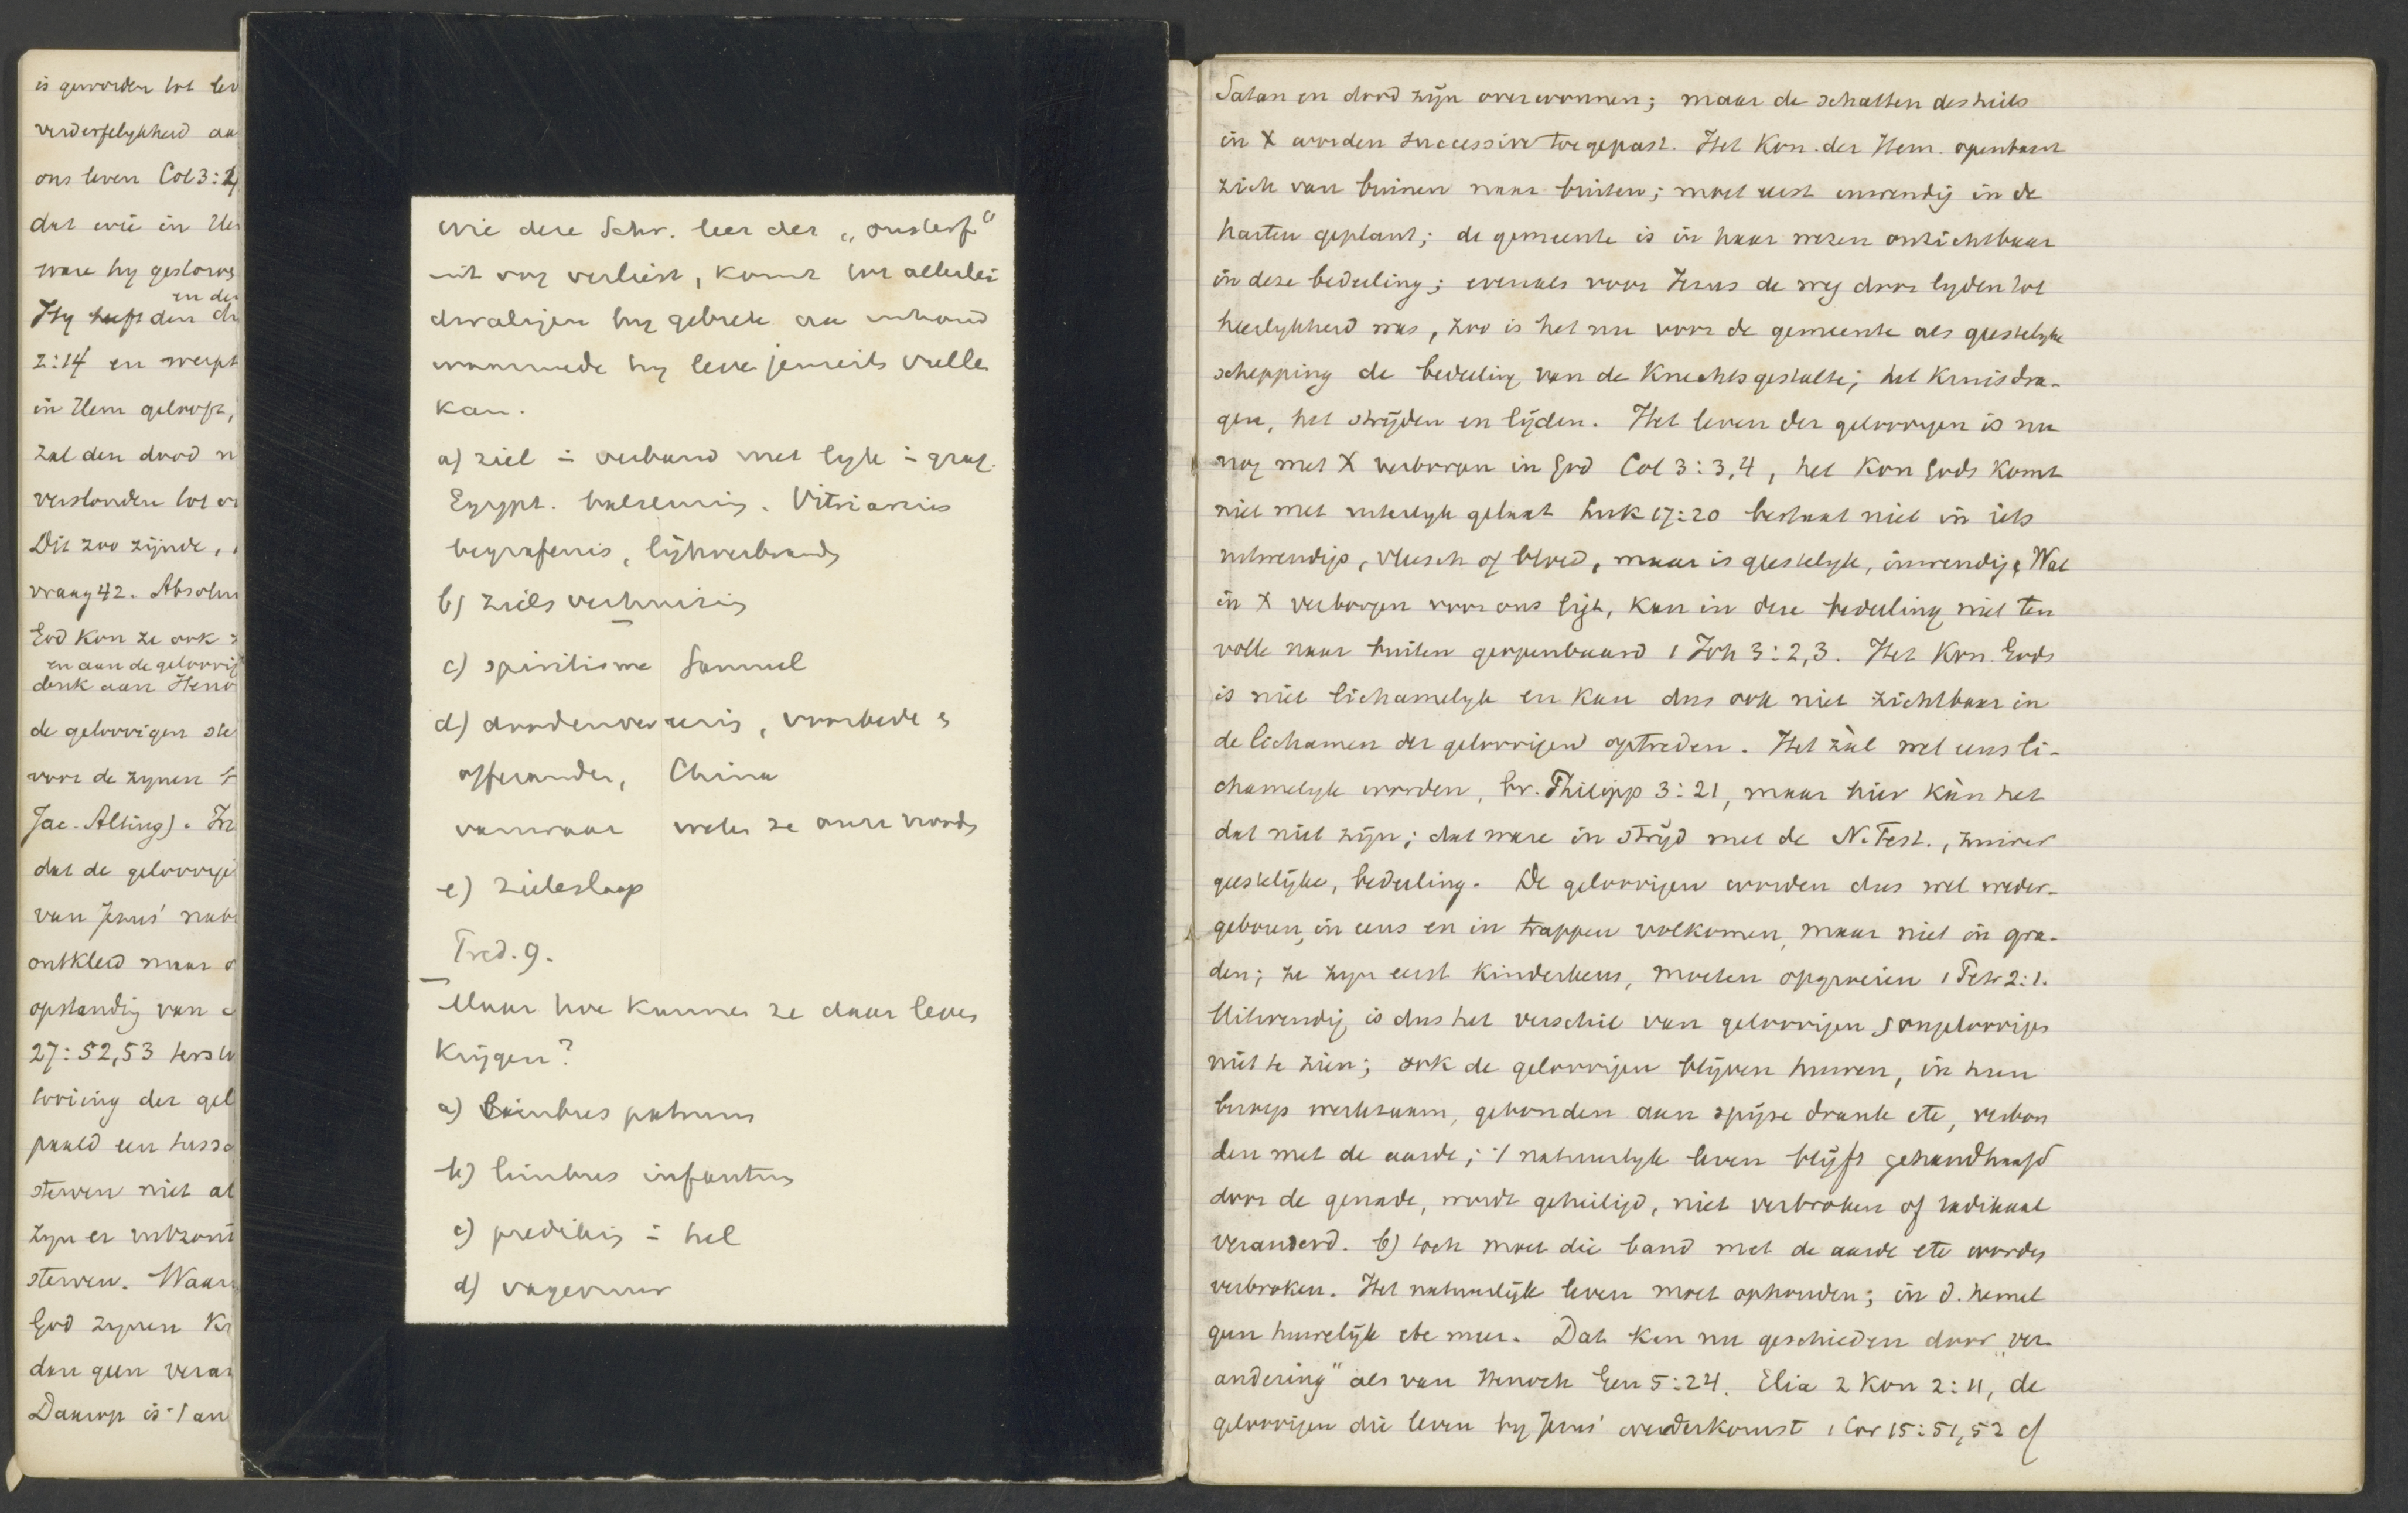 is geworden tot lev
verderfelykheid aa
ons leven Col 3:4
dat wie in Hem
ware hy gestorve
en de
Hy heeft den du
2:14 en werpt
in Hem gelooft,
zal den dood n
verslonden tot ov
Dit zoo zijnde,
vraag 42. Absolu
God kon ze ook z
en aan de geloovig
denk aan Heno
de geloovigen ste
voor de zynen
Jac. Alting). In
dat de geloovige
van Jezus' nab
ontkleed maar o
opstanding van
27:52,53 terst
looiing der gel
paald een tussc
sterven niet al
zyn er ontzond
sterven. Waar
God zynen K
dan geen veran
Daarop is 't an
wie deze Schr. leer der „onsterf"
uit oog verliest, komt tot allerlei
dwalingen by gebrek aan inhoud
waarmede hy leve jenseits vulle
kan.
a) ziel = verband met lyk = graf.
Egypt. balseming.
begrafenis, lijkverbrand
b) zielsverhuizing
c) spiritisme Samuel
d) doodenver , voorbede &
offerande, China
vanwaar weten ze onze noods
e) zieleslaap
Tred. 9.
Maar hoe kunnen ze daar leven
krijgen?
a) limbus patrum
b) limbus infantum
c) prediking = hel
d) vagevuur
Satan en dood zijn overwonnen; maar de schatten des heils
in X worden successive toegepast. Het Kon. der Hem. openbaart
zich van binnen naar buiten; moet eerst inwendig in de
harten geplant; de gemeente is in haar wezen onzichtbaar
in deze bedeeling; evenals voor Jezus de weg door lyden tot
heerlykheid was, zoo is het nu voor de gemeente als geestelyke
schepping de bedeeling van de Knechtsgestalte; het kruisdra-
gen, het strijden en lijden. Het leven der geloovigen is nu
nog met X verborgen in God Col 3:3,4, het Kon Gods komt
niet met uiterlyk gelaat Luk 17:20 bestaat niet in iets
uitwendigs, vleesch of bloed, maar is geestelyk, inwendig. Wat
in X verborgen voor ons ligt, kan in deze bedeeling niet ten
volle naar buiten geopenbaard 1 Joh 3:2,3. Het Kon. Gods
is niet lichamelyk en kan dus ook niet zichtbaar in
de lichamen der geloovigen optreden. Het zàl wel eens li-
chamelyk worden, bv. Philipp 3:21, maar hier kàn het
dat niet zijn; dat ware in strijd met de N. Test., zuiver
geestelijke, bedeeling. De geloovigen worden dus wel weder-
geboren, in eens en in trappen volkomen, maar niet in gra-
den; ze zyn eerst kinderkens, moeten opgroeien 1 Petr 2:1.
Uitwendig is dus het verschil van geloovigen & ongeloovigen
niet te zien; ook de geloovigen blijven huwen, in hun
beroep werkzaam, gebonden aan spijze drank etc, verbon
den met de aarde; 't natuurlyk leven blijft gehandhaafd
door de genade, wordt geheiligd, niet verbroken of radikaal
veranderd. b) toch moet die band met de aarde etc worden
verbroken. Het natuurlijk leven moet ophouden; in d. hemel
geen huwelijk etc meer. Dat kan nu geschieden door „ver-
andering" als van Henoch Gen 5:24. Elia 2 Kon 2:11, de
geloovigen die leven by Jezus' wederkomst 1 Cor 15:51,52 cf